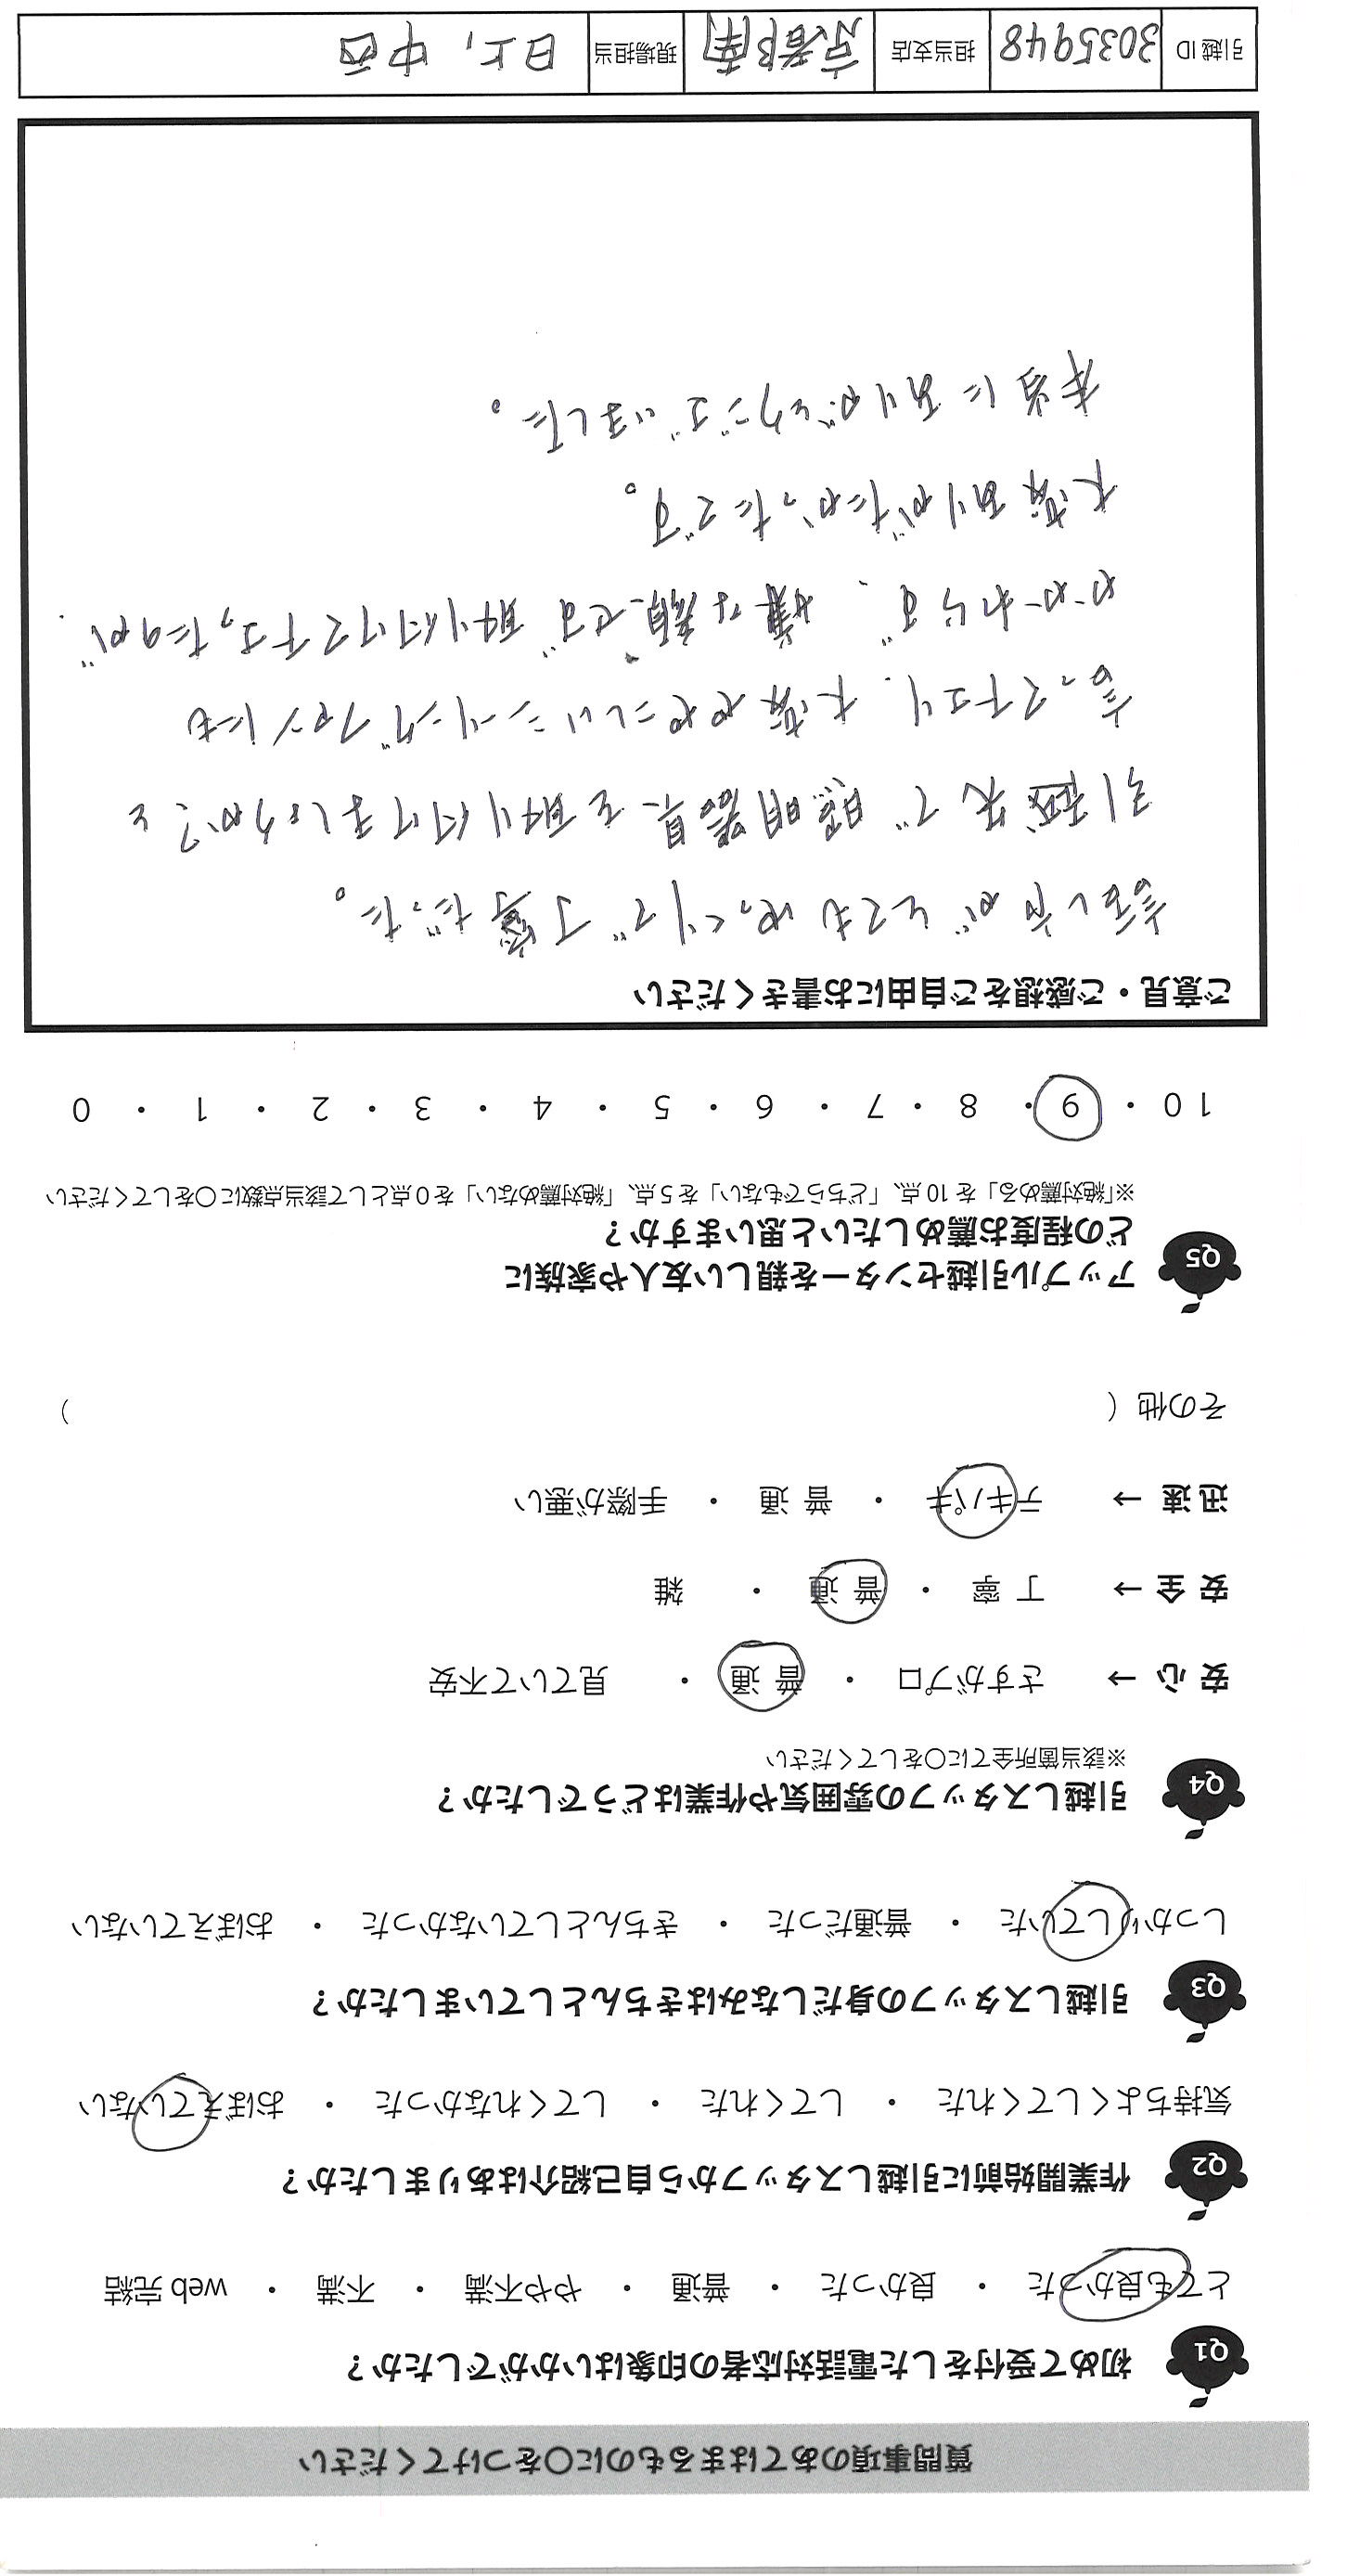 質問事項のあてはまるものに○をつけてください
Q1 初めて受付をした電話対応者の印象はいかがでしたか？
とても良かった ・ 良かった ・ 普通 ・ やや不満 ・ 不満 ・ web 完結
Q2 作業開始前に引越しスタッフから自己紹介はありましたか？
気持ちよくしてくれた ・ してくれた ・ してくれなかった ・ おぼえていない
Q3 引越しスタッフの身だしなみはきちんとしていましたか？
しっかりしていた ・ 普通だった ・ きちんとしていなかった ・ おぼえていない
Q4 引越しスタッフの雰囲気や作業はどうでしたか？
※該当箇所全てに○をしてください
安 心 → さすがプロ ・ 普 通 ・ 見ていて不安
安 全 → 丁 寧 ・ 普 通 ・ 雑
迅 速 → テキパキ ・ 普 通 ・ 手際が悪い
その他 （ ）
Q5 アップル引越センターを親しい友人や家族に
どの程度お薦めしたいと思いますか？
※「絶対薦める」を 10 点、「どちらでもない」を 5 点、「絶対薦めない」を 0 点として該当点数に○をしてください
10 ・ 9 ・ 8 ・ 7 ・ 6 ・ 5 ・ 4 ・ 3 ・ 2 ・ 1 ・ 0
ご意見・ご感想をご自由にお書きください
話し方がとてもゆっくりで丁寧だった。
引越先で照明器具を取り付けましょうか？と
言って下さり、大変ややこしいシーリングファンにも
かかわらず、嫌な顔せず取り付けて下さったのが、
大変ありがたかったです。
本当にありがとうございました。
引越 ID 3035948 担当支店 京都南 現場担当 日上, 中西